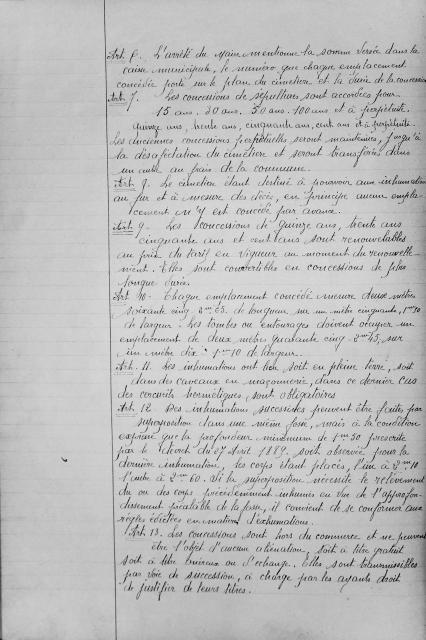 Art. 6. L'arrêté du Maire mentionne la somme versée dans la
caisse municipale, le numéro que chaque emplacement
concédé porte sur le plan du cimetière et la durée de la concession
Art. 7. Les concessions de sépulture sont accordées pour
15 ans. 30 ans. 50 ans. 100 ans et à perpétuité.
quinze ans, trente ans, cinquante ans, cent ans et à perpétuité.
Les anciennes concessions perpétuelles seront maintenues, jusqu'à
la désafectation du cimetière et seront transférées dans
un autre au frais de la commune.
Art. 8. Le cimetière étant destiné à pourvoir aux inhumations
au fur et à mesure des décès, en principe aucun empla-
cement n'y est concédé par avance.
Art. 9. Les concessions de quinze ans, trente ans
cinquante ans et cent ans sont renouvelables
au prix du tarif en vigueur au moment du renouvelle-
ment. Elles sont convertibles en concessions de plus
longue durée.
Art. 10. Chaque emplacement concédé mesure deux mètres
soixante cinq 2m65 de longueur sur un mètre cinquante, 1m50
de largeur. Les tombes ou entourages doivent occuper un
emplacement de deux mètres quarante cinq 2m45, sur
un mètre dix 1m10 de largeur.
Art. 11. Les inhumations ont lieu soit en pleine terre, soit
dans des caveaux en maçonnerie, dans ce dernier cas
des cercueils hermétiques, sont obligatoires
Art. 12. Des inhumations successives peuvent être faites, par
superposition dans une même fosse, mais à la condition
expresse que la profondeur minimum de 1m50 prescrite
par le décret du 27 Avril 1889, soit observée pour la
dernière inhumation, les corps étant placés, l'un à 2m10
l'autre à 2m60. Si la superposition nécessite le relèvement
du ou des corps précédemment inhumés en vue de l'approfon-
dissement préalable de la fosse, il convient de se conformer aux
règles édictées en matière d'exhumations.
Art. 13. Les concessions sont hors du commerce et ne peuvent
être l'objet d'aucune aliénation, soit à titre gratuit
soit à titre onéreux ou d'échange. Elles sont transmissibles
par voie de succession, à charge par les ayants droit
de justifier de leurs titres.